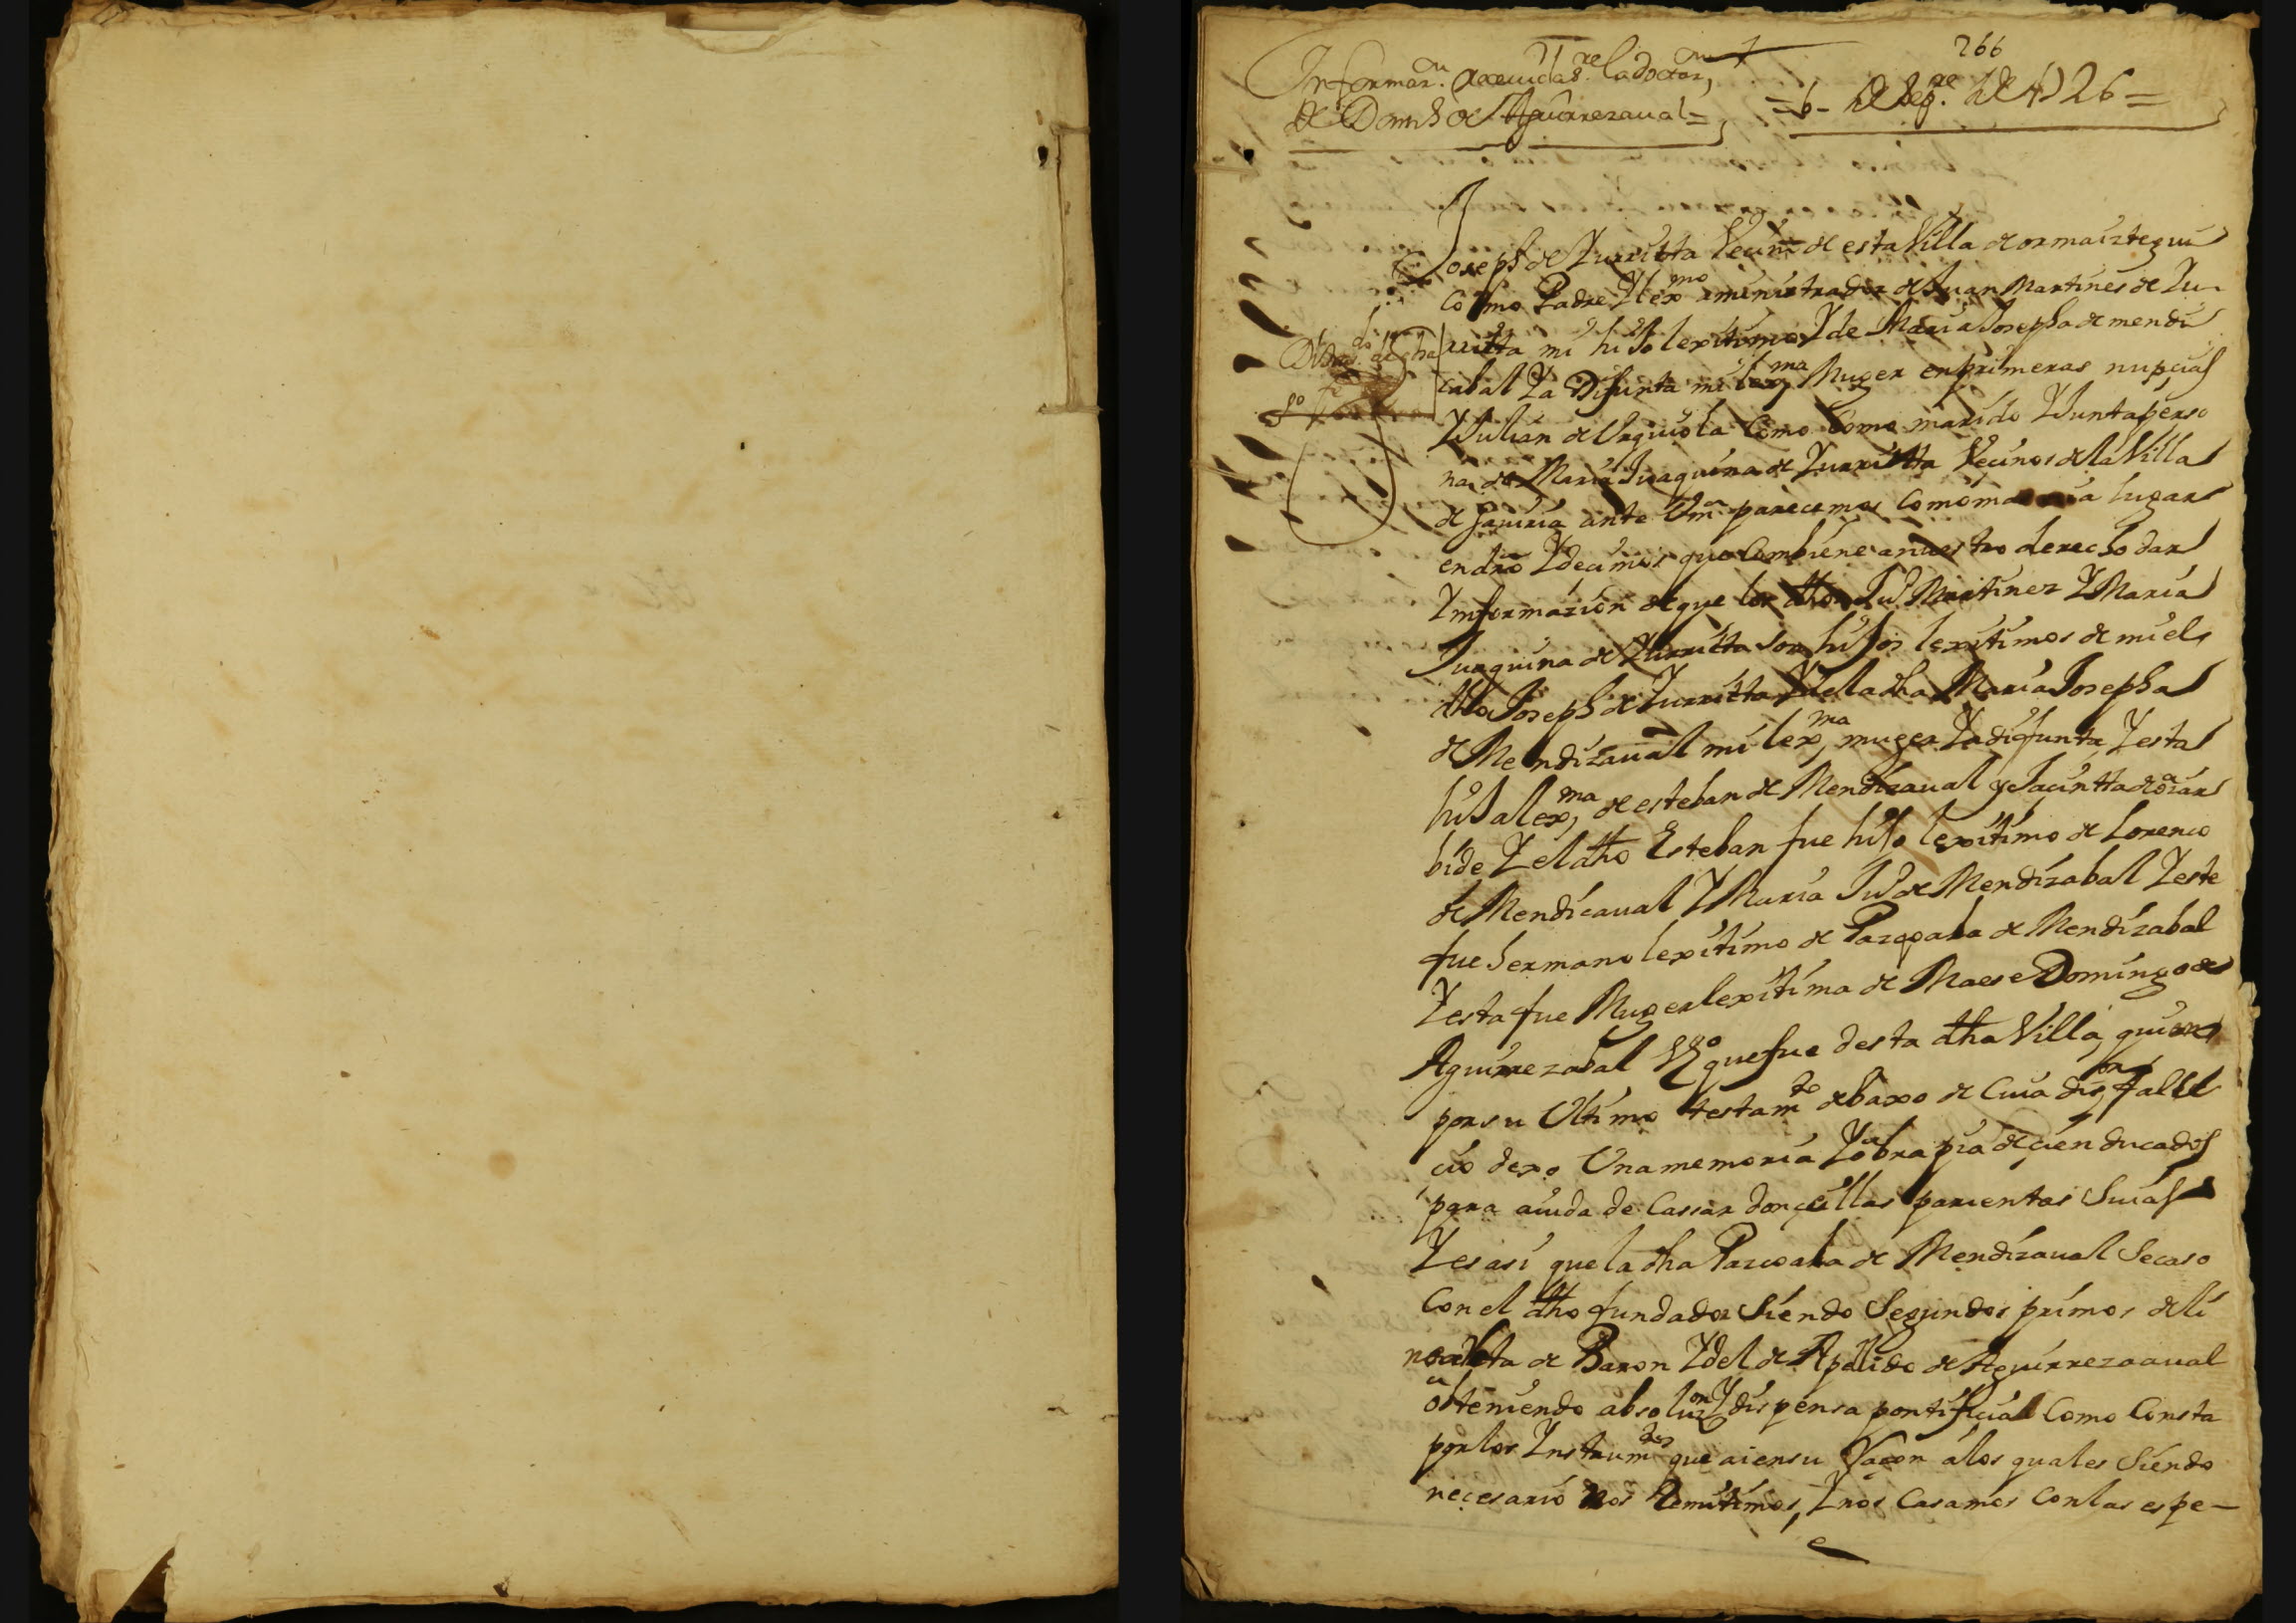 266
Informaz.on rezeuida sre la dotaz.on
de Dom.o de Aguirrezaual =
= 6 - de Sep.re de 1726 =
Joseph de Zurutta Vecino de esta Villa de ormaiztegui
como Padre Y lex.mo aministrador de Juan Martines de Zu-
rutta mi hiJo lexitimo Y de Maria Josepha de mendi
cabal Ya Difunta mi lex.ma Muger en primeras nupcias
Y Julian de Urquiola Como Como marido Y Junta perso
na de Maria Juaquina de Zurutta Vecinos de la Villa
de Gauiria ante Vm parecemos Como mas aia lugar
en dro Y decimos que Combiene a nuestro derecho dar
Ynformazion de que los dhos Ju.o Martinez Y Maria
Juaquina de Zurutta son hiJos lexitimos de mi el
dho Joseph de Zurutta Y de la dha Maria Josepha
de Mendizaual mi lex.ma muger Ya difunta, Y esta
hiJa lex.ma de esteban de Mendizaual y Jacintta de oiar
bide Y el dho Esteban fue hiJo lexitimo de Lorenzo
de Mendicaual Y Maria Ju.o de Mendizabal Y este
fue hermano lexitimo de Pazquala de Mendizabal
Y esta fue Muger lexitima de Maese Domingo de
Aguirrezabal Vz.o que fue desta dha Villa, quien
por su Ultimo testam.to debaxo de Cuia dis.on falle
cio dexo Una memoria Y obra pia de cien ducados
para aiuda de Cassar donçellas parientas Suias
Y es asi que la dha Pazquala de Mendizaual Se caso
Con el dho fundador Siendo Segundos primos de li
nea rta de Baron Y del de Apellido de Aguirrezaaual
obteniendo absoluz.on Y dispensa pontificial Como Consta
por los Ynstrum.tos que ai en su Raçon a los quales Siendo
neçesario nos Remitimos, Y nos Casamos Con las espe-